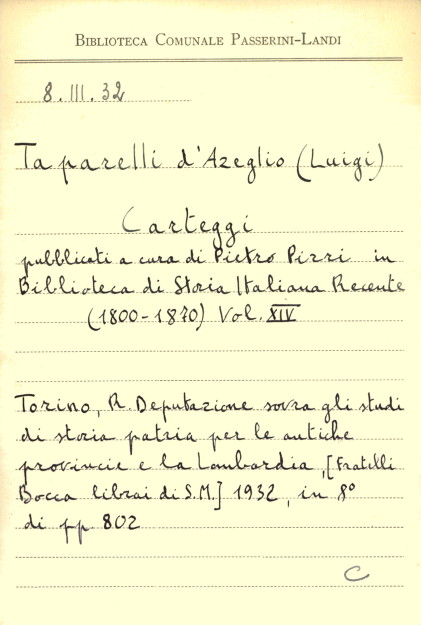 BIBLIOTECA COMUNALE PASSERINI-LANDI
8.III.32
Taparelli d'Azeglio (Luigi)
Carteggi
pubblicati a cura di Pietro Pirri in
Biblioteca di Storia Italiana Recente
(1800-1870) Vol. XIV
Torino, R. Deputazione sovra gli studi
di storia patria per le antiche
provincie e la Lombardia, [Fratelli
Bocca librai di S.M.] 1932, in 8°
di pp. 802
C